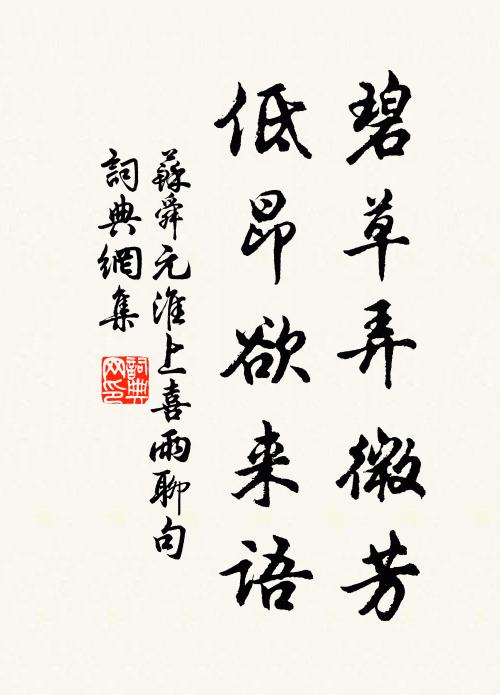 碧草弄微芳
低昂欲来语
蘇舜元淮上喜雨聊句
詞典網集
詞典网印